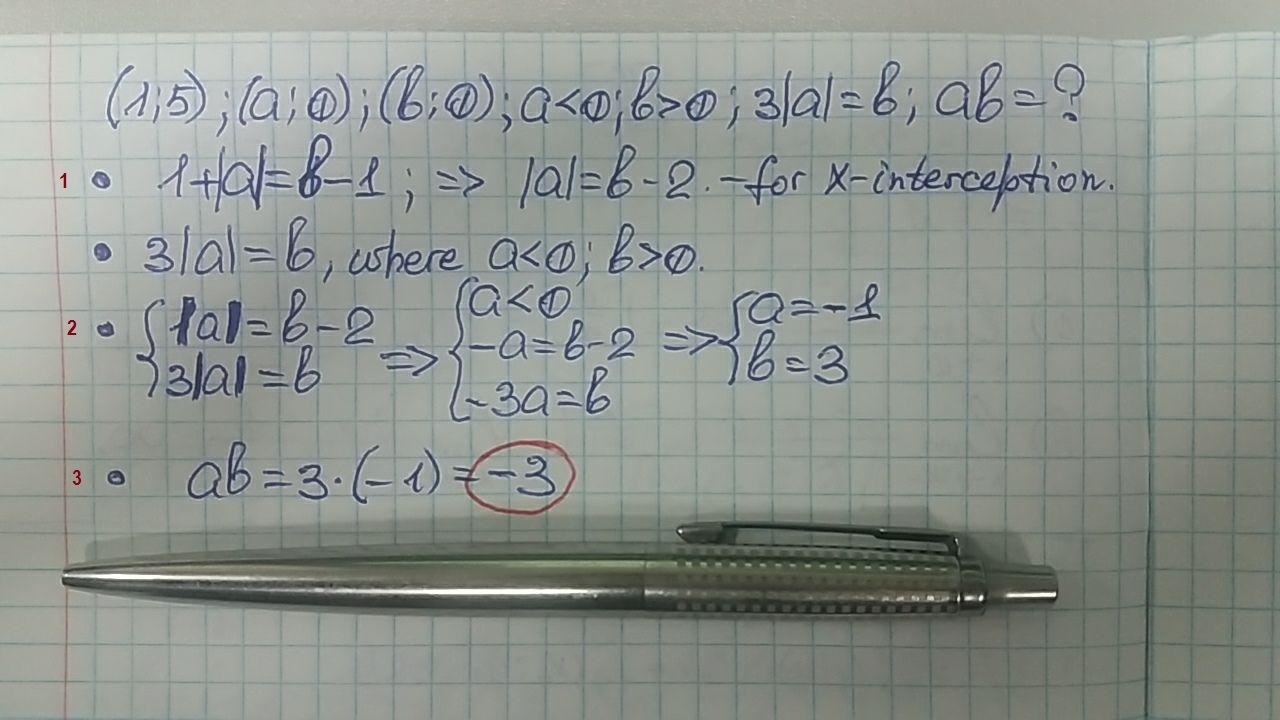 (1;5); (a;0); (b;0); a<0; b>0; 3|a|=b; ab=?
1 • 1+|a|=b-1; => |a|=b-2. -for x-interception.
• 3|a|=b, where a<0; b>0.
2 • {|a|=b-2 3|a|=b => {a<0 -a=b-2 -3a=b => {a=-1 b=3
3 • ab=3·(-1)=-3